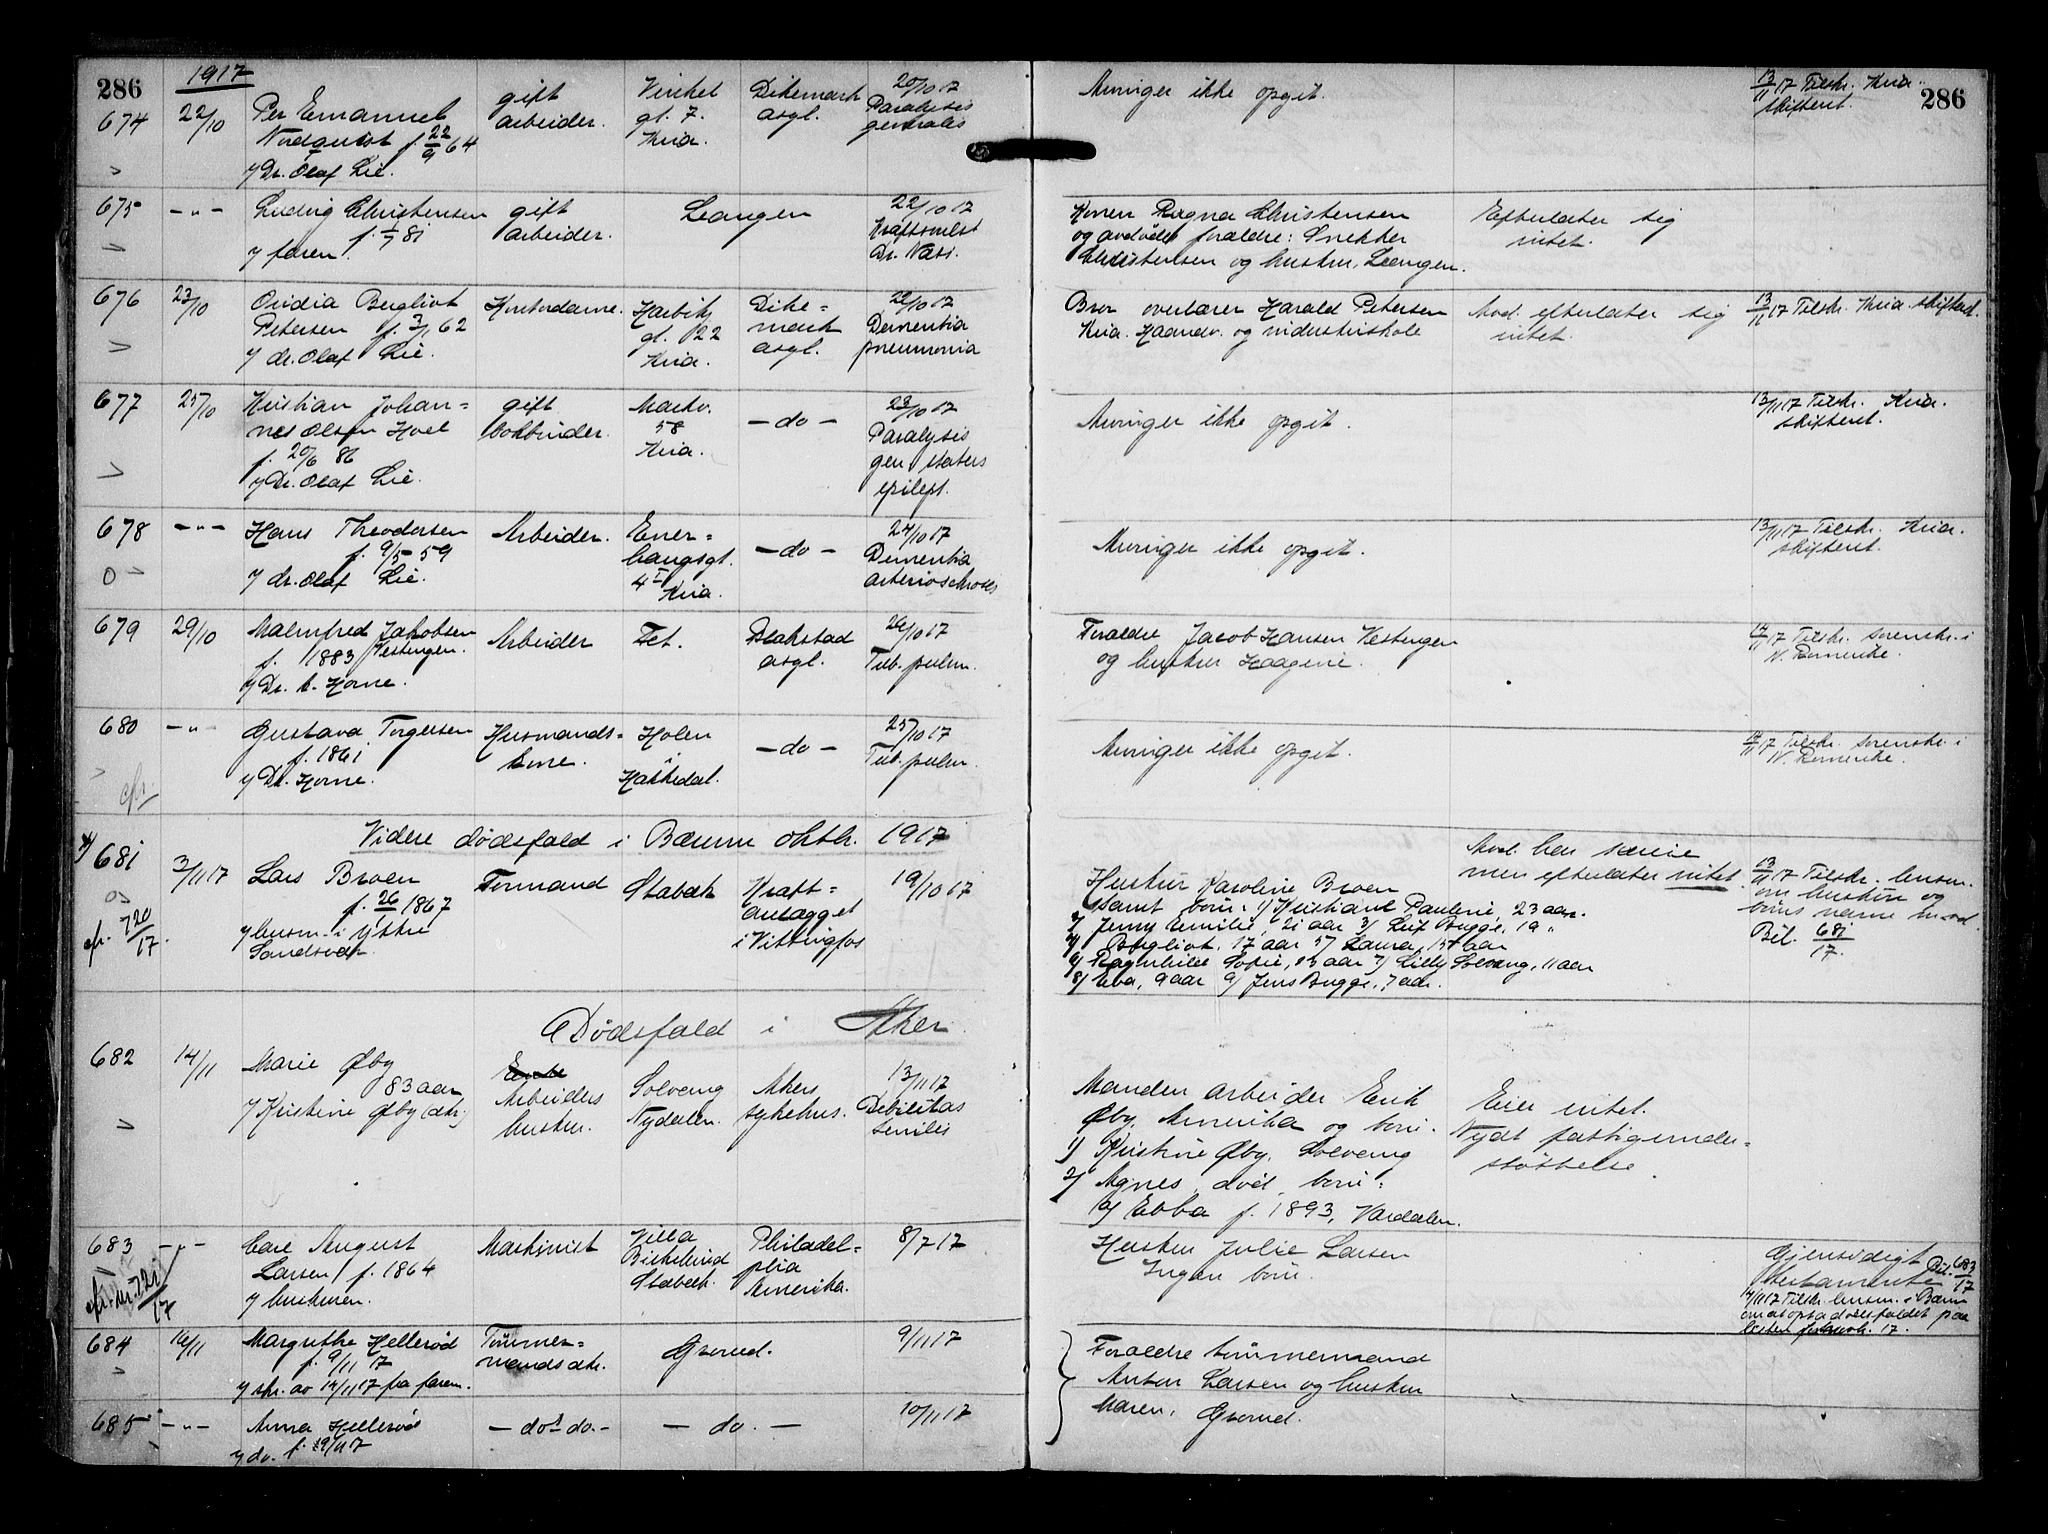 286
1917
286
674
22/10
Per Emanuel
Nordquist f. 22/9 64
y Dr. Olaf Lie.
gift
arbeider.
Vinkel
gt. 7.
Kria.
Dikemark
asyl.
20/10 17
Paralysis
generalis
Arvinger ikke opgit.
13/11 17 Tilskr. Kria.
skifteret.
675
— " —
Ludvig Christensen
f. 1/7 81
y faren.
gift
arbeider.
Leangen
22/10 17
Kræftsvulst
Dr. Næss.
Konen Ragna Christensen
og avdødes forældre: Snekker
Christensen og hustru, Leangen.
Efterlater sig
intet.
676
23/10
Ovidia Bergliot
Petersen f. 3/1 62
y dr. Olaf Lie.
Kontordame.
Harbitz
gt. 22
Kria.
Dike=
mark
asyl.
22/10 17
Dementia
pneumonia
Bror overlærer Harald Petersen
Kria. Haandv. og industriskole
Avd. efterlater sig
intet.
13/11 17 Tilskr. Kria skifteret.
677
25/10
Kristian Johan=
nes Olsen Hoel
f. 20/6 86
y Dr. Olaf Lie.
gift
bokbinder.
Markv.
58
Kria.
— do —
23/10 17
Paralysis
gen. status
epilept.
Arvinger ikke opgit.
13/11 17 Tilskr. Kria.
skifteret.
678
— " —
Hans Theodorsen
f. 9/5 59
y dr. Olaf Lie.
Arbeider.
Ener=
haugsgt.
4 I
Kria.
— do —
24/10 17
Dementia
arterioschroses
Arvinger ikke opgit.
13/11 17 Tilskr. Kria.
skifteret.
679
29/10
Malmfred Jakobsen
f. 1883 Vestengen.
y Dr. C. Horne.
Arbeider
Fet.
Blakstad
asyl.
26/10 17
Tub. pulm.
Foraldre Jacob Hansen Vestengen
og hustru Haagine.
14/11 17 Tilskr. sorenskr. i
N. Romerike.
680
— " —
Gustava Torgersen
f. 1861
y Dr. Horne.
Husmands=
kone.
Holen
i
Hakkedal.
— do —
25/10 17
Tub. pulm.
Arvinger ikke opgit.
14/11 17 Tilskr. sorenskr. i
N. Romerike.
Videre dödsfald i Bærum oktbr. 1917
681
cfr. 720/17.
3/11 17
Lars Broen
f. 26/ 1867
y lensm. i Yttre
Sandsvær
Formand
Stabæk
Kraft=
anlægget
i Vittingfos
19/10 17
Hustru Karoline Broen
samt born: 1/ Kristiane Pauline, 23 aar.
2/ Jenny Emilie, 21 aar 3/ Leif Bugge, 19 "
4/ Bergliot, 17 aar 5/ Laura, 15 aar
6/ Ragnhild Sofie, 13 aar 7/ Lilly Solvang, 11 aar
8/ Eba, 9 aar 9/ Jens Bugge, 7 aar.
Avd. har særeie
men efterlater intet.
13/11 17 Tilskr. lensm.
om hustru og
börns navne m.v.
Bil. 681/17.
Dödsfald i Aker
682
14/11
Marie Øby
83 aar
y Kristine Øby (dtr.)
Arbeiders
hustru.
Solvang
Nydalen.
Akers
sykehus.
13/11 17
Debilitas
senilis
Manden arbeider Erik
Øby, Amerika og born:
1) Kristine Øby, Solvang
2) Agnes, död, born:
a) Ebba f. 1893, Vardalen.
Eier intet.
Nydt fattigunder=
støttelse.
683
cfr. nr. 721/17
— " —
Carl August
Larsen f. 1864
y hustruen.
Maskinist
Villa
Birkelund
Stabæk.
Philadel=
phia
Amerika.
8/7 17
Hustru Julie Larsen
Ingen born.
Gjensidigt
testamente Bil. 683/17
684
16/11
Margrethe Hellerød
f. 9/11 17
y skr. av 14/11 17 fra faren.
Tömmer=
mands dtr.
Grorud.
9/11 17
Foraldre tömmermand
Anton Larsen og hustru
Maren, Grorud.
685
— " —
Anna Hellerød
y do. f. 9/11 17
— do's do. —
— do. —
10/11 17